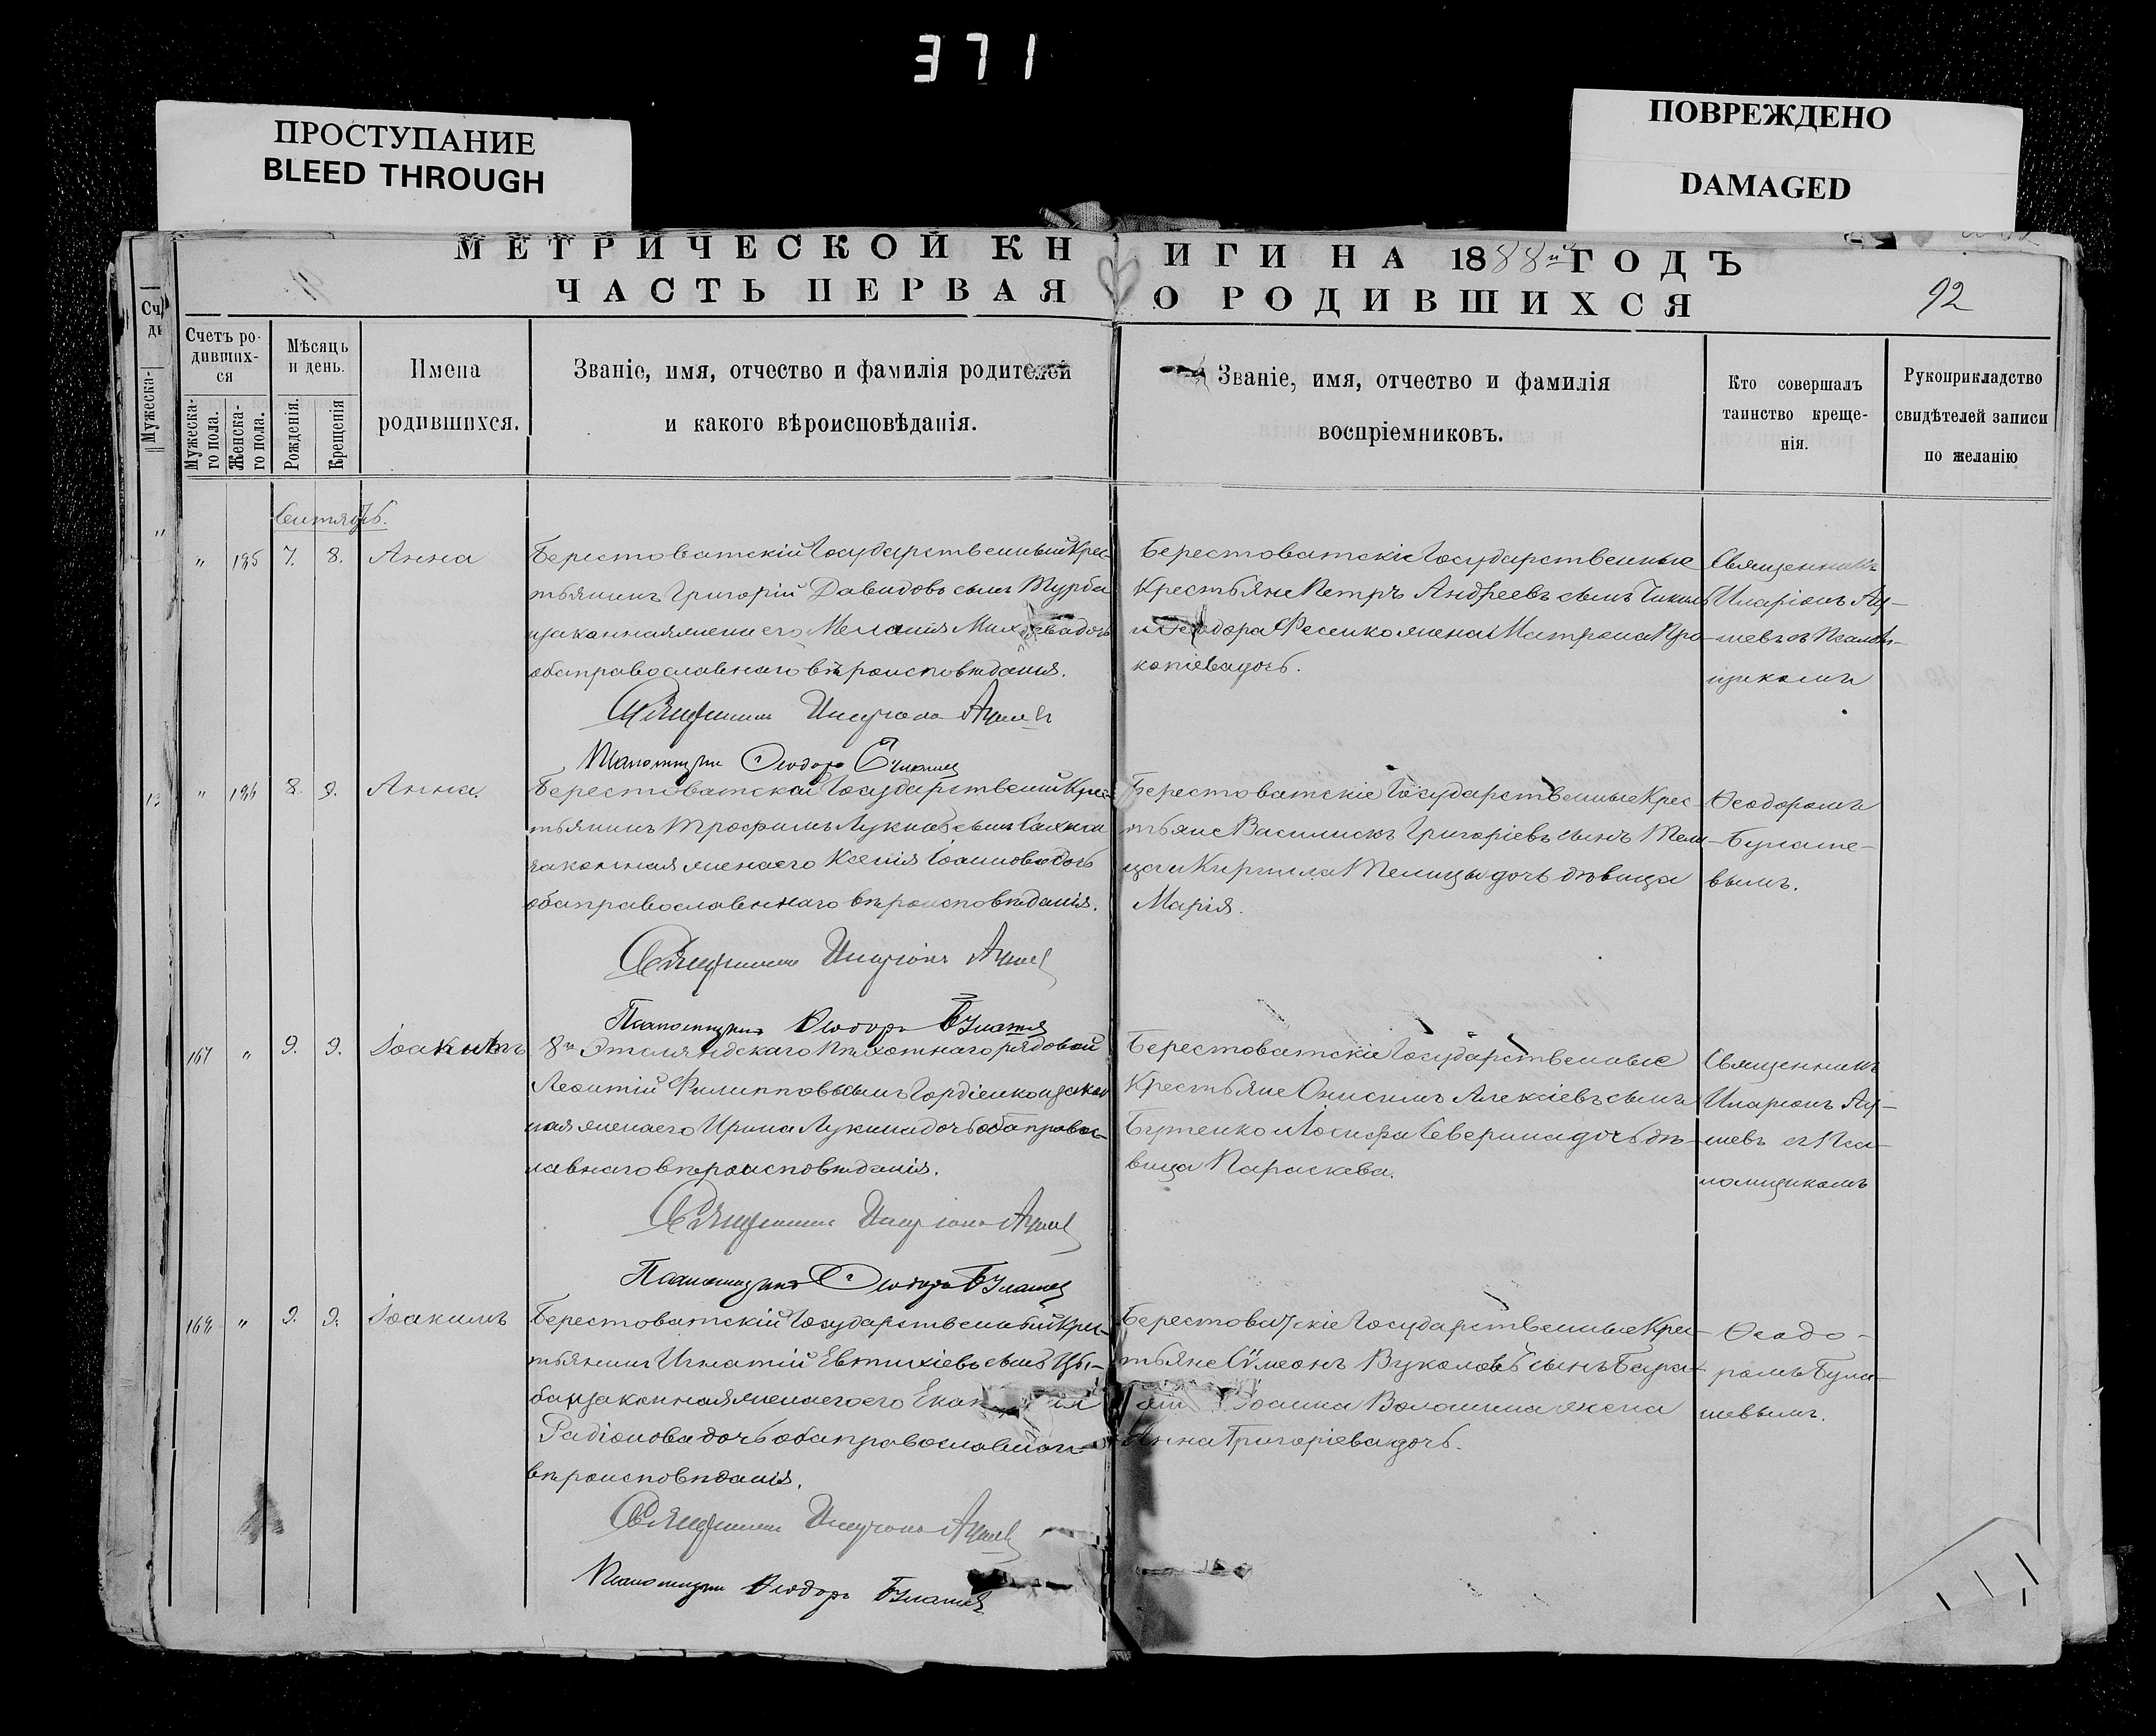 371
ПРОСТУПАНИЕ
BLEED THROUGH
ПОВРЕЖДЕНО
DAMAGED
МЕТРИЧЕСКОЙ КНИГИ НА 1888й ГОДЪ
ЧАСТЬ ПЕРВАЯ О РОДИВШИХСЯ
92
Счетъ родившихся
Мужеска-го пола.
Женска-го пола.
Мѣсяцъ и день.
Рожденія.
Крещенія
Имена
родившихся.
Званіе, имя, отчество и фамилія родителей
и какого вѣроисповѣданія.
Званіе, имя, отчество и фамилія
воспріемниковъ.
Кто совершалъ
таинство креще-
нія.
Рукоприкладство
свидѣтелей записи
по желанію
Мужеска-
Сентябрь.
" 195 7. 8. Анна
Берестоватскій Государственный Крес-
тьянинъ Григорій Давидовъ сынъ Турба
и законная жена его Меланія дочь
оба православнаго вѣроисповѣданія.
Священникъ Иларіонъ
Псаломщикъ Ѳеодоръ
Берестоватскіе Государственные
Крестьяне Петръ Андреевъ сынъ
и Ѳеодора Фесенко жена Матрона Про-
копіева дочь.
Священникъ
Иларіонъ Ау-
шевъ съ Псалом-
щикомъ
" 196 8. 9. Анна.
Берестоватскій Государственный Крес-
тьянинъ Трофимъ Лукинъ сынъ
законная жена его Ксенія Іоаннова дочь
оба православнаго вѣроисповѣданія.
Священникъ Иларіонъ
Псаломщикъ Ѳеодоръ
Берестоватскіе Государственные Крес-
тьяне Василискъ Григоріевъ сынъ Тели-
ца и Кирилла Телицы дочь дѣвица
Марія.
Ѳеодоромъ
Булаше-
вымъ.
167 " 9. 9. Іоакимъ
8го Эстляндскаго Пѣхотнаго рядовой
Леонтій Филипповъ сынъ Гордіенко и закон
ная жена его Ирина Лукина дочь оба правос-
лавнаго вѣроисповѣданія.
Священникъ Иларіонъ
Псаломщикъ Ѳеодоръ
Берестоватскіе Государственные
Крестьяне Онисимъ Алексіевъ сынъ
Бутенко и Іосифа Северина дочь дѣ-
вица Параскева.
Священникъ
Иларіонъ Ау-
шевъ съ Пса-
ломщикомъ
168 " 9. 9. Іоакимъ
Берестоватскій Государственный Крес-
тьянинъ Игнатій Евтихіевъ сынъ Цы-
ба и законная жена его
Радіонова дочь оба православнаго
вѣроисповѣданія.
Священникъ Иларіонъ
Псаломщикъ Ѳеодоръ
Берестоватскіе Государственные Крес-
тьяне Сѵмеонъ Вуколовъ сынъ
Іоанна Волошина жена
Анна Григоріева дочь.
Ѳеодо-
ромъ Була-
шевымъ.